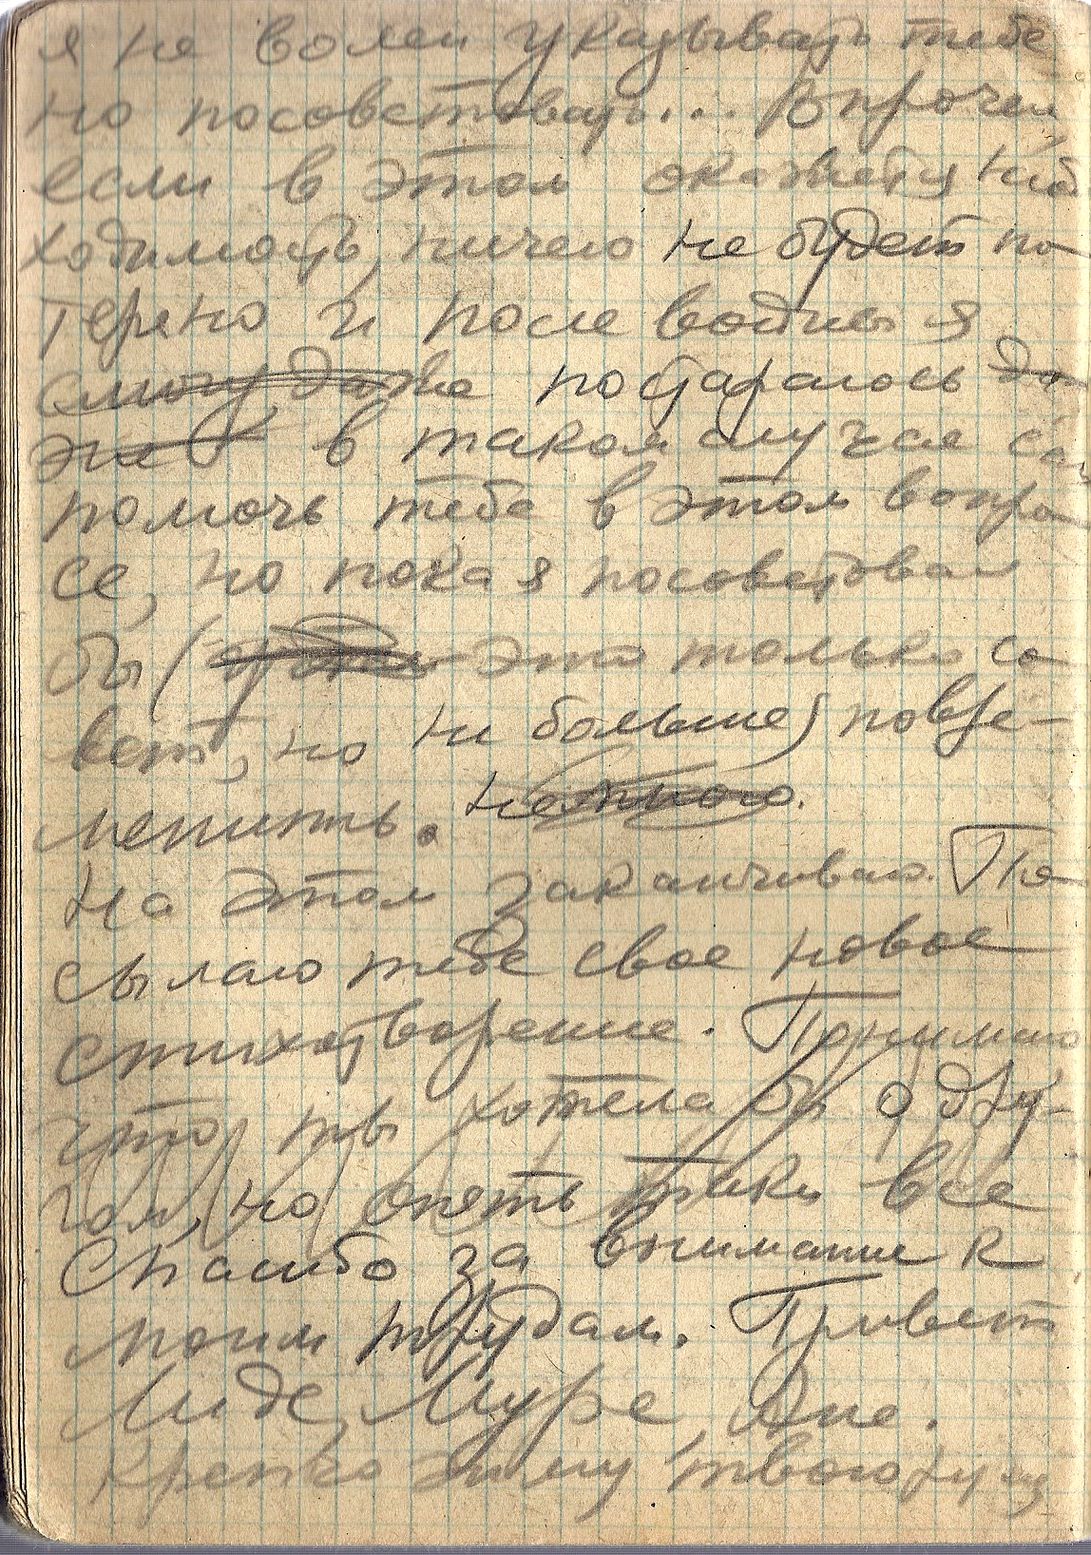 я не волен указывать тебе
но посоветовать... Впрочем,
если в этом окажется необ
ходимость, ничего не будет по
теряно и после войны я
смогу даже постараюсь да
же в таком случае сам
помочь тебе в этом вопро
се, но пока я посоветовал
бы ( это только со
вет, но не больше) повре-
менить.
На этом заканчиваю. По
сылаю тебе свое новое
стихотворение. Понимаю,
что ты хотела бы о дру-
гом, но опять таки все
Спасибо за внимание к
моим трудам. Привет
Лиде, Муре, Ане.
Крепко жму твою руку